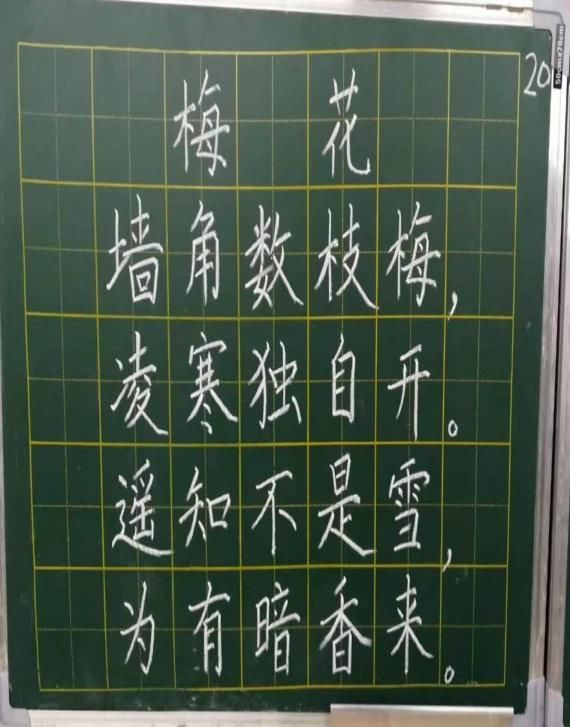 梅花
墙角数枝梅，
凌寒独自开。
遥知不是雪，
为有暗香来。
20
50cm×70cm